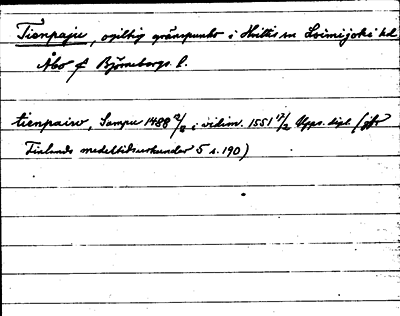 Tienpaju, ogiltig gränspunkt i Hvittis sn Loimijoki hd
Åbo o Björneborgs l.
tienpaiw, Sampu 1488 2/8 i vidim. 1551 17/2 Upps. dipl. (jfr
Finlands medeltidsurkunder 5 s. 190)